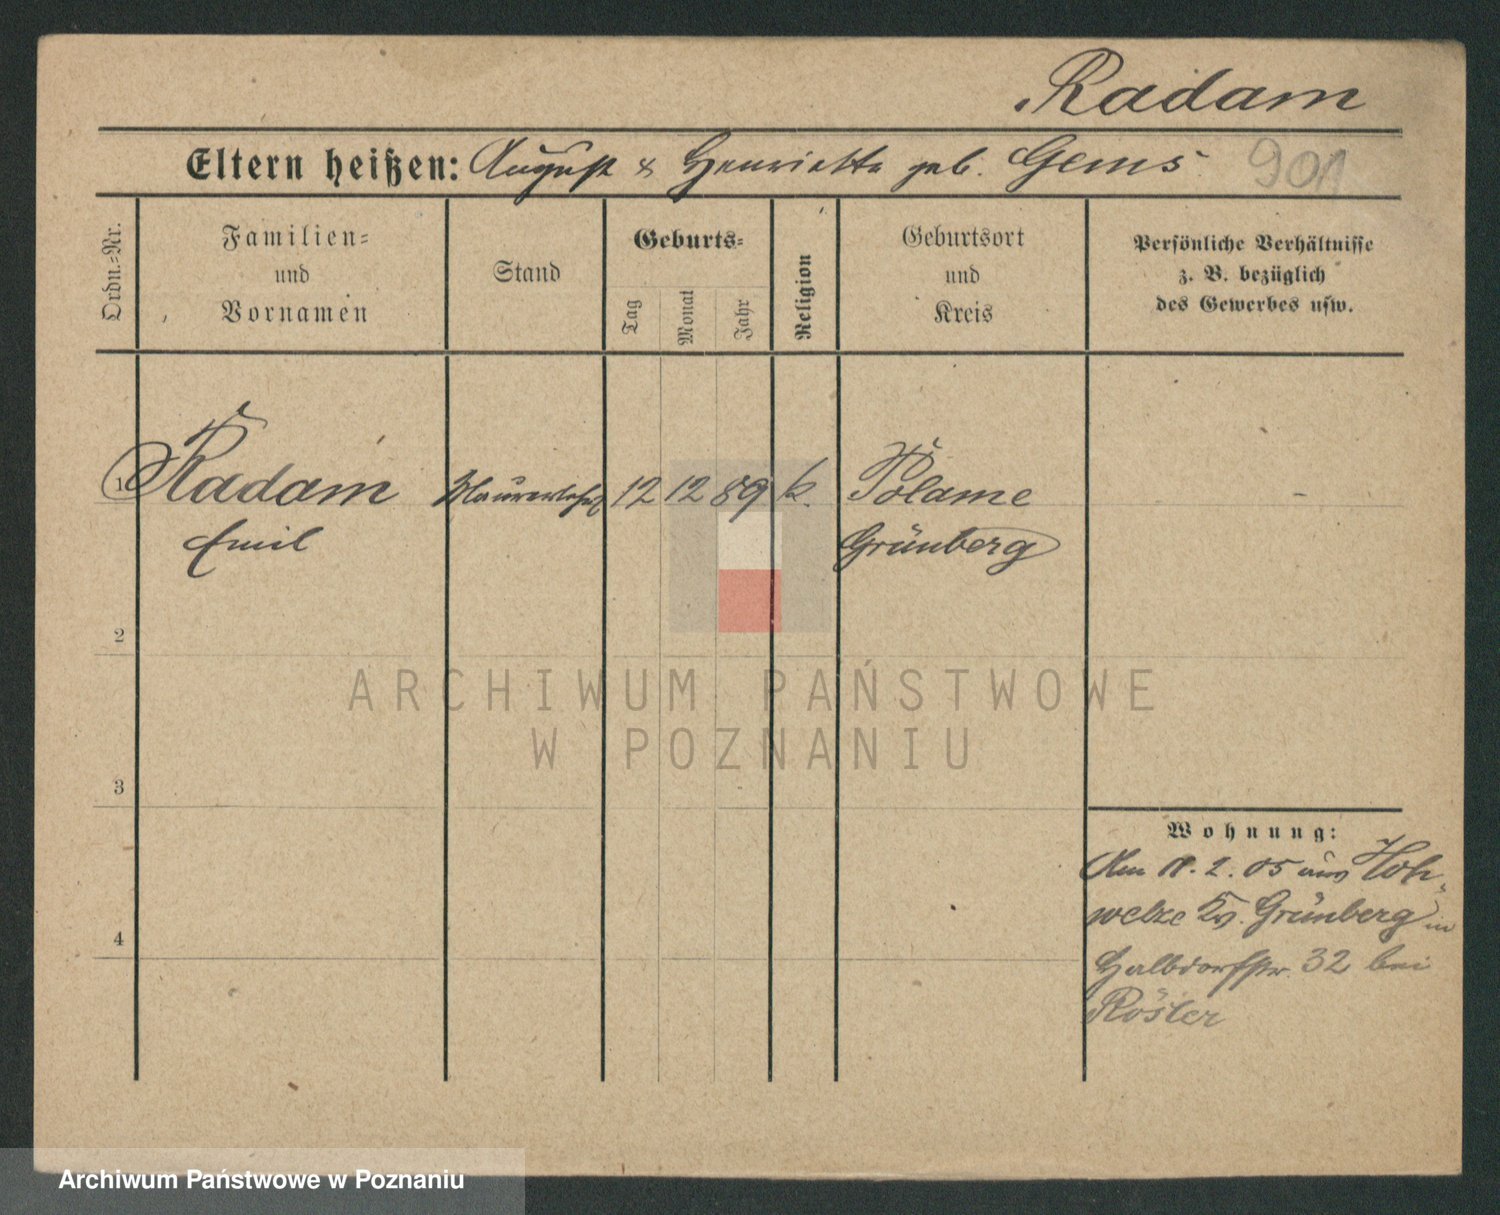 Radam
Eltern heißen: August & Henriette geb. Gems
901
Ordn.=Nr.
Familien=
und
Vornamen
Stand
Geburts=
Tag
Monat
Jahr
Religion
Geburtsort
und
Kreis
Persönliche Verhältnisse
z. B. bezüglich
des Gewerbes usw.
1 Radam Maurerlehrl 12 12 89 k. Polame –
Emil Grünberg
2
ARCHIWUM PAŃSTWOWE
W POZNANIU
3
Wohnung:
Am 2. 05 aus Hoh-
welze Kr. Grünberg in
4
Halbdorfstr. 32 bei
Rösler
Archiwum Państwowe w Poznaniu